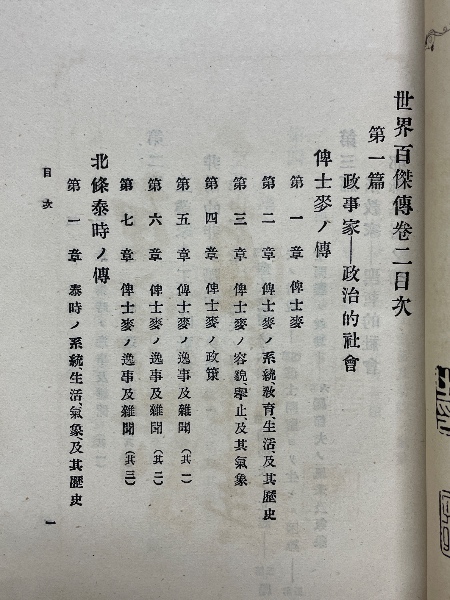 世界百傑傳卷二目次
第一篇
政事家―政治的社會
俾士麥ノ傳
第一章 俾士麥
第二章 俾士麥ノ系統、教育、生活、及其歷史
第三章 俾士麥ノ容貌、擧止、及其氣象
第四章 俾士麥ノ政策
第五章 俾士麥ノ逸事及雜聞（其一）
第六章 俾士麥ノ逸事及雜聞（其二）
第七章 俾士麥ノ逸事及雜聞（其三）
北條泰時ノ傳
第一章 泰時ノ系統、生活、氣象、及其歷史
目次
一